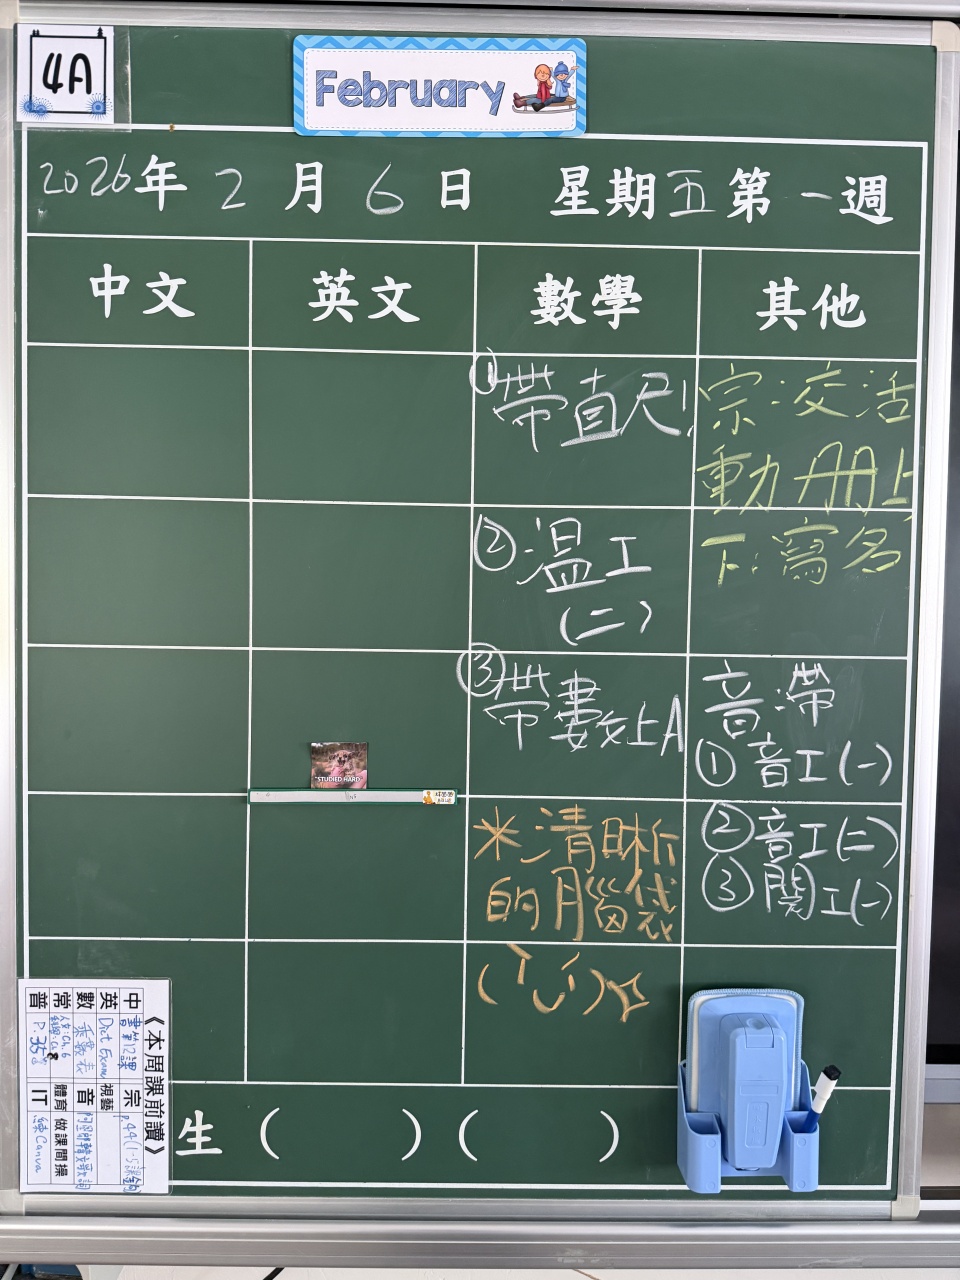 4A
February
2026年 2 月 6 日 星期五 第一週
中文 英文 數學 其他
①帶直尺!
②溫工
(二)
③帶書數上A
*清晰
的腦袋
宗:交活
動冊上
下:寫名
音:帶
①音工(一)
②音工(二)
③閱工(一)
"STUDIED HARD
《本周課前讀》
中 書第12課
英 Dict Exam
數 乘數表
常
普 P.35
宗 P.44(1-5課)
視藝
音
體育 做課間操
IT Canva
生 ( ) ( )